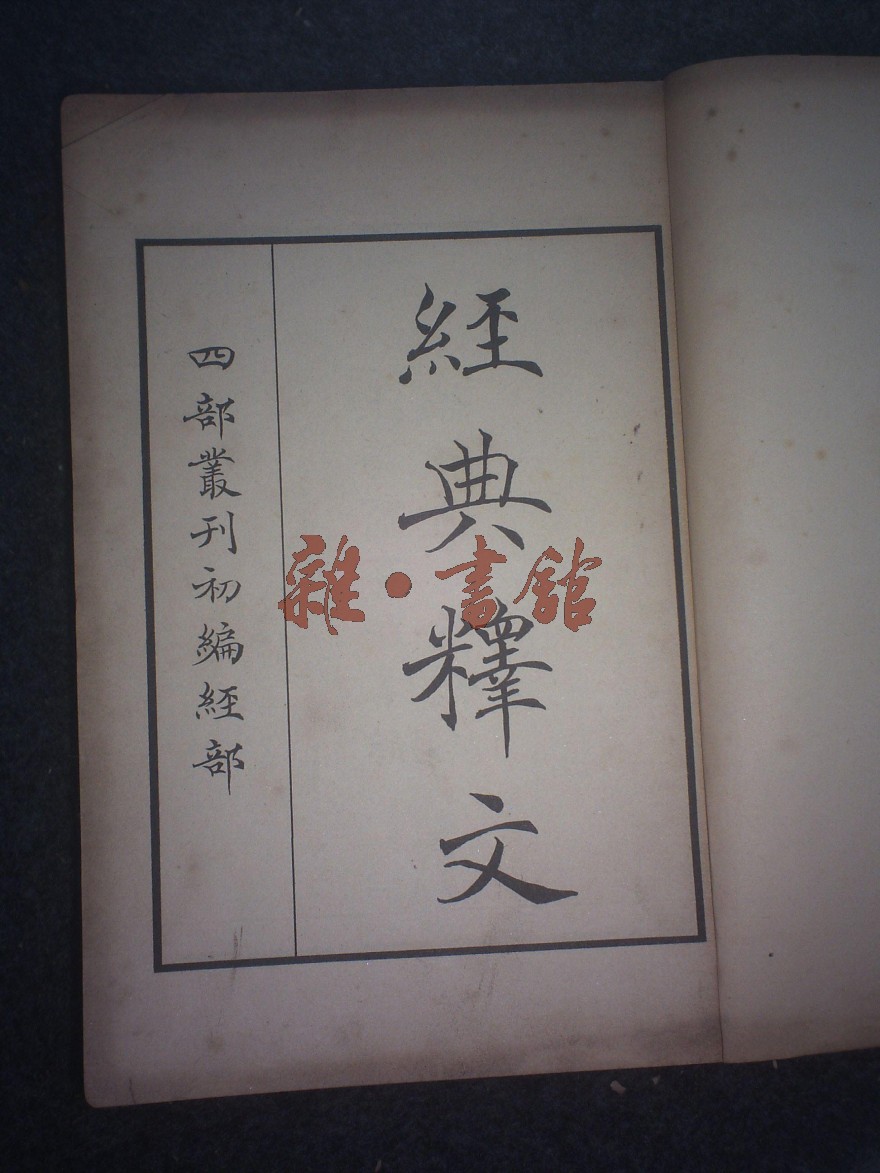 經典釋文
四部叢刊初編經部
雜·書館